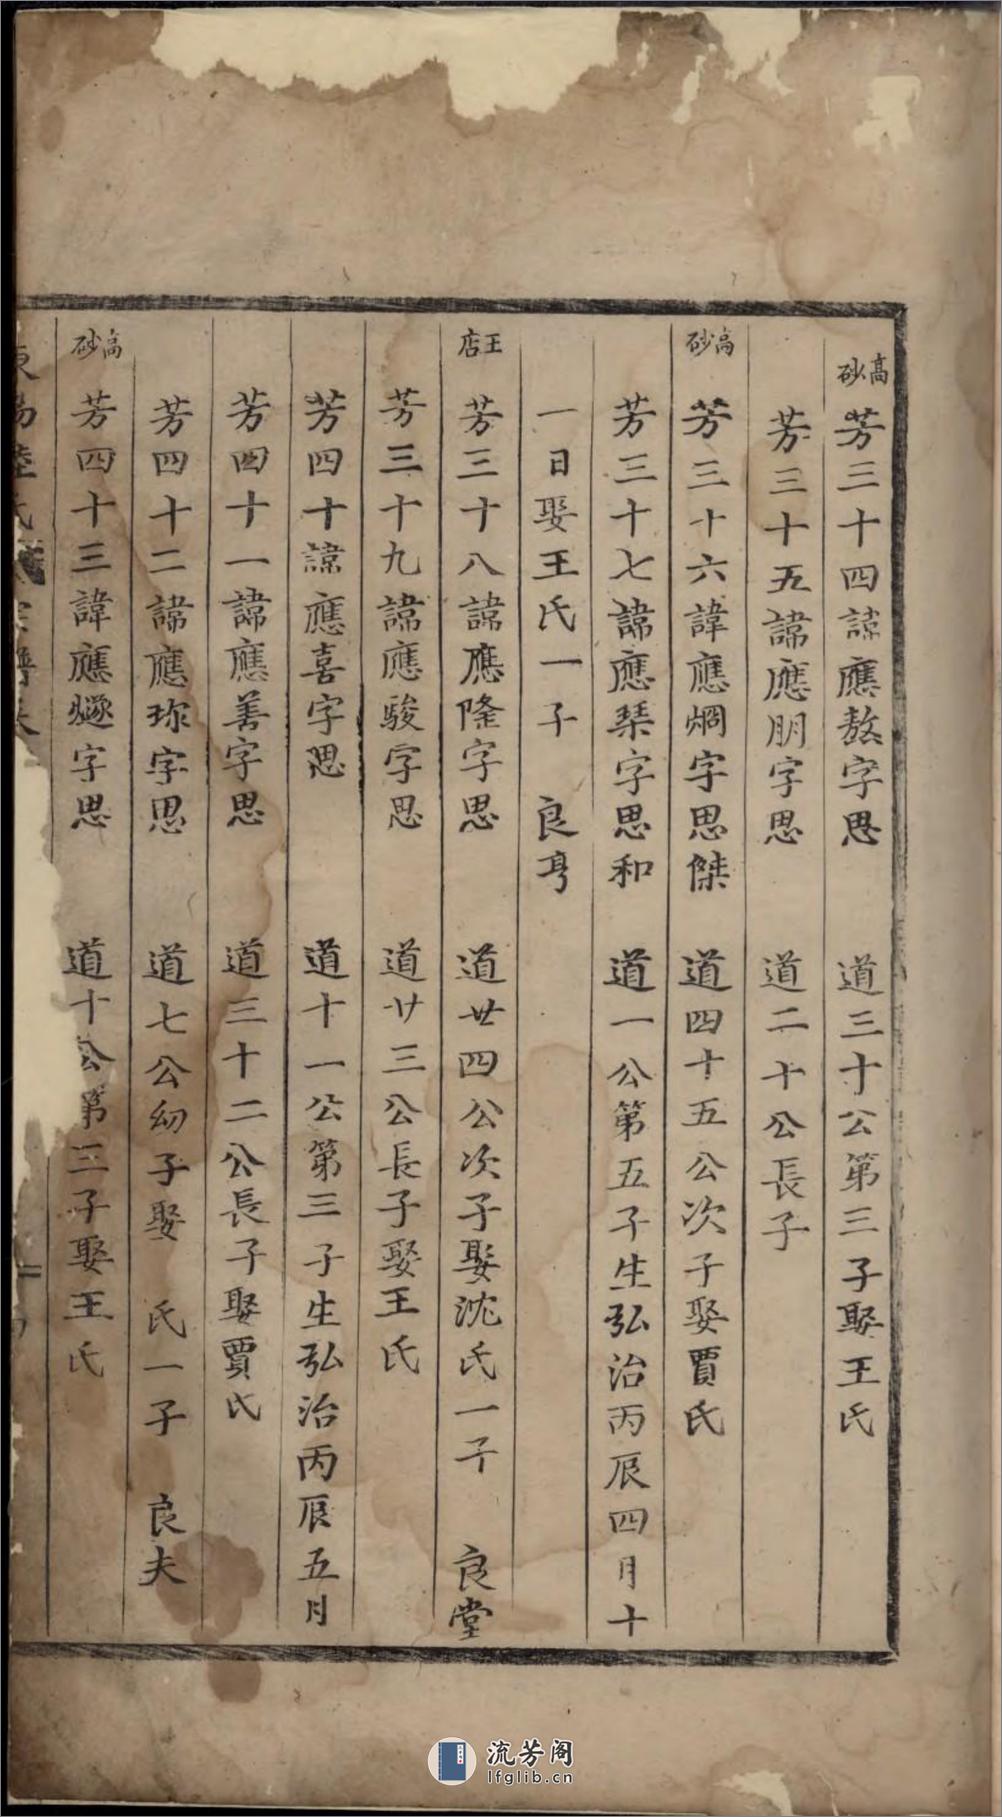 高砂
芳三十四諱應熬字思 道三十公第三子娶王氏
芳三十五諱應朋字思 道二十公長子
高砂
芳三十六諱應烱字思傑 道四十五公次子娶賈氏
芳三十七諱應琹字思和 道一公第五子生弘治丙辰四月十
一日娶王氏一子 良亨
王店
芳三十八諱應隆字思 道廿四公次子娶沈氏一子 良堂
芳三十九諱應駿字思 道廿三公長子娶王氏
芳四十諱應喜字思 道十一公第三子生弘治丙辰五月
芳四十一諱應善字思 道三十二公長子娶賈氏
芳四十二諱應珎字思 道七公幼子娶 氏一子 良夫
高砂
芳四十三諱應燧字思 道十公第三子娶王氏
流芳阁
lfglib.cn